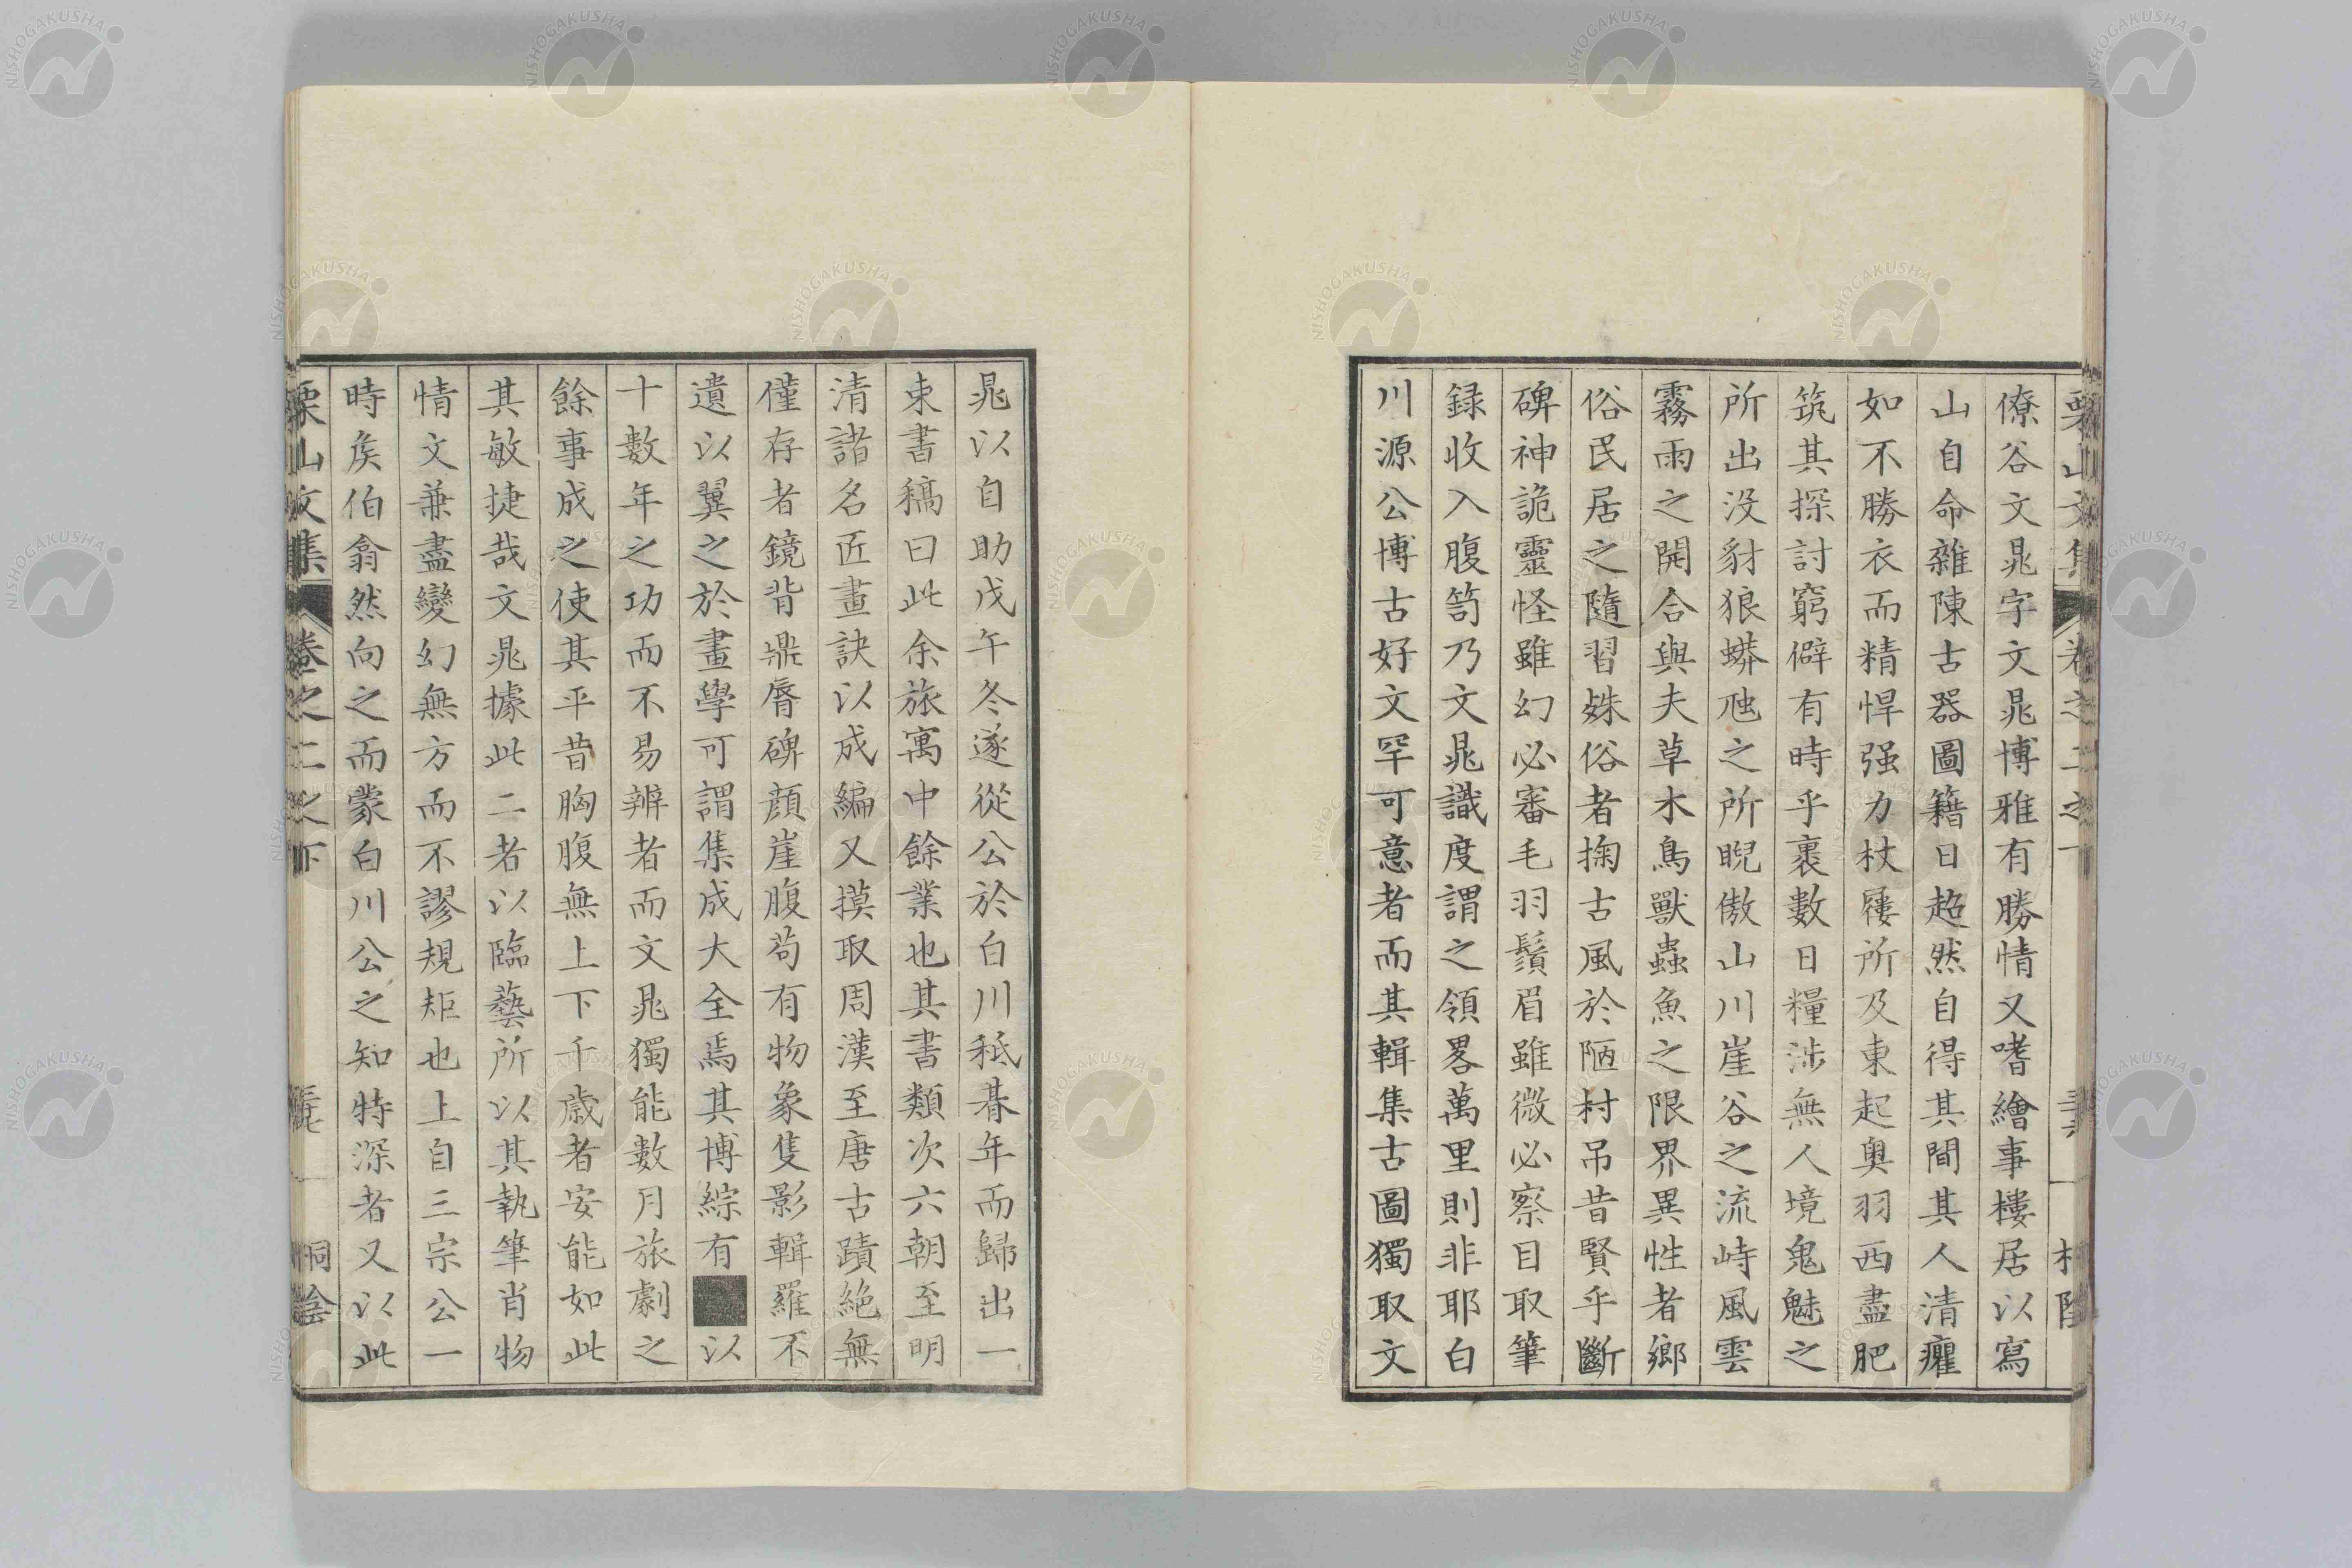 僚谷文晁字文晁博雅有勝情又嗜繪事樓居以寫
山自命雜陳古器圖籍日超然自得其間其人清癯
如不勝衣而精悍强力杖屨所及東起奥羽西盡肥
筑其探討窮僻有時乎裹數日糧涉無人境鬼魅之
所出没豺狼蟒虺之所睨傲山川崖谷之流峙風雲
霧雨之開合與夫草木鳥獸蟲魚之限界異性者鄉
俗民居之隨習姝俗者掬古風於陋村吊昔賢乎斷
碑神詭靈怪雖幻必審毛羽鬚眉雖微必察目取筆
録收入腹笥乃文晁識度謂之領畧萬里則非耶白
川源公博古好文罕可意者而其輯集古圖獨取文
晁以自助戊午冬遂從公於白川秪朞年而歸出一
束書稿曰此余旅寓中餘業也其書類次六朝至明
清諸名匠畫訣以成編又摸取周漢至唐古蹟絶無
僅存者鏡背鼎脣碑顔崖腹苟有物象隻影輯羅不
遺以翼之於畫學可謂集成大全焉其博綜有■以
十數年之功而不易辨者而文晁獨能數月旅劇之
餘事成之使其平昔胸腹無上下千歳者安能如此
其敏捷哉文晁據此二者以臨藝所以其執筆肖物
情文兼盡變幻無方而不謬規矩也上自三宗公一
時矦伯翕然向之而蒙白川公之知特深者又以此
栗山文集 卷之二之下 桐陰
NISHOGAKUSHA